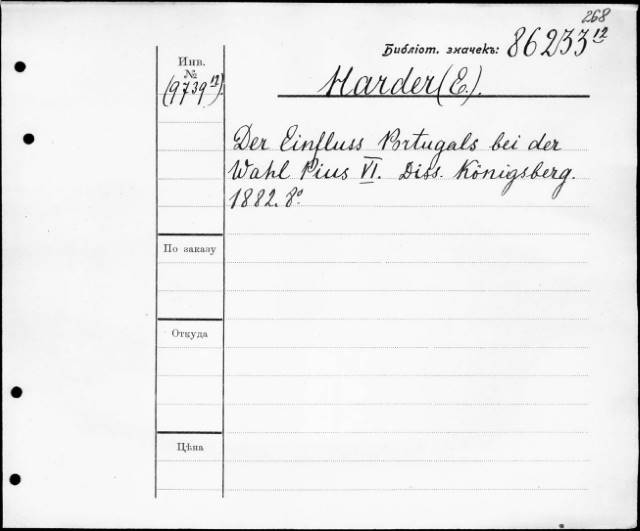 268
Библіот. значекъ: 86233 12
Инв.
№
(9739 12).
Harder (E.).
Der Einfluss Portugals bei der
Wahl Pius VI. Diss. Königsberg.
1882. 8°
По заказу
Откуда
Цѣна